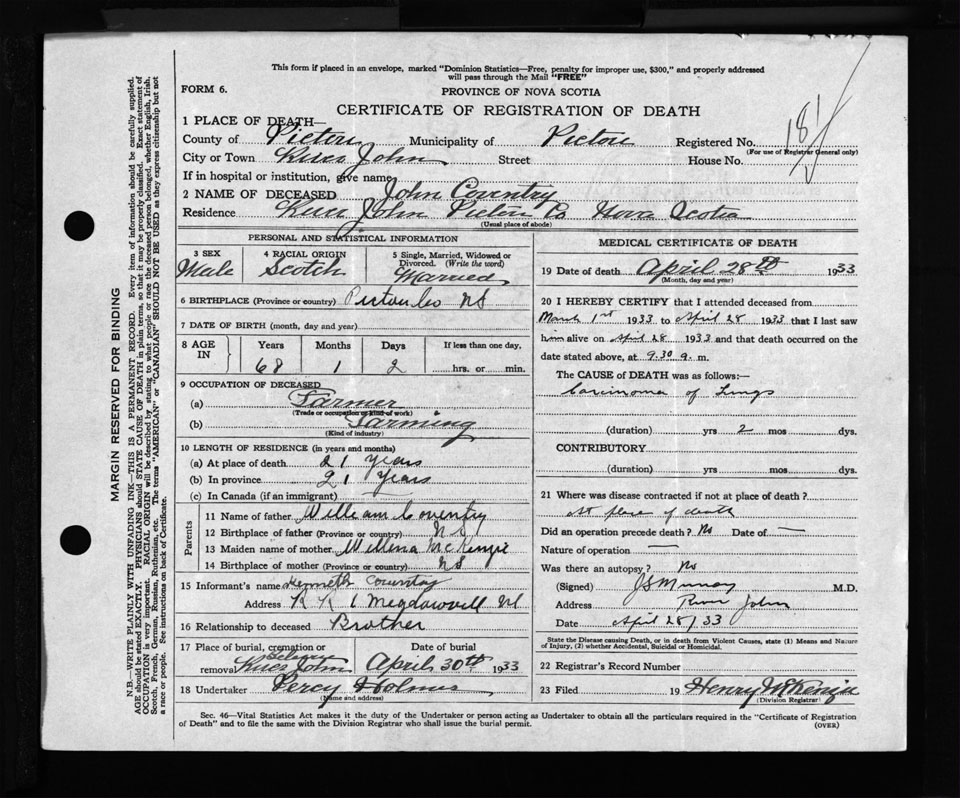 This form if placed in an envelope, marked "Dominion Statistics—Free, penalty for improper use, $300," and properly addressed
will pass through the Mail "FREE"
FORM 6.
PROVINCE OF NOVA SCOTIA
CERTIFICATE OF REGISTRATION OF DEATH
1 PLACE OF DEATH—
County of Pictou Municipality of Pictou Registered No.
(For use of Registrar General only)
City or Town River John Street House No.
If in hospital or institution, give name
2 NAME OF DECEASED John Coventry
Residence River John Pictou Co Nova Scotia
(Usual place of abode)
PERSONAL AND STATISTICAL INFORMATION
3 SEX Male
4 RACIAL ORIGIN Scotch
5 Single, Married, Widowed or Divorced. (Write the word) Married
6 BIRTHPLACE (Province or country) Pictou Co NS
7 DATE OF BIRTH (month, day and year)
8 AGE IN Years Months Days If less than one day,
68 1 2 hrs. or min.
9 OCCUPATION OF DECEASED
(a) Farmer
(Trade or occupation or kind of work)
(b) Farming
(Kind of industry)
10 LENGTH OF RESIDENCE (in years and months)
(a) At place of death 21 Years
(b) In province 21 Years
(c) In Canada (if an immigrant) —
Parents
11 Name of father William Coventry
12 Birthplace of father (Province or country) N S
13 Maiden name of mother Willena McKenzie
14 Birthplace of mother (Province or country) NS
15 Informant's name Kenneth Coventry
Address R R 1 Meadowvill NS
16 Relationship to deceased Brother
17 Place of burial, cremation or Date of burial
removal River John April 30th 1933
18 Undertaker Percy Holmes
(Name and address)
MEDICAL CERTIFICATE OF DEATH
19 Date of death April 28th 1933
(Month, day and year)
20 I HEREBY CERTIFY that I attended deceased from
March 1st 1933 to April 28 1933 that I last saw
him alive on April 28 1933 and that death occurred on the
date stated above, at 9.30 a. m.
The CAUSE OF DEATH was as follows:—
Carcinoma of Lungs
(duration) yrs 2 mos dys.
CONTRIBUTORY
(duration) yrs mos dys.
21 Where was disease contracted if not at place of death?
At place of death
Did an operation precede death? No Date of —
Nature of operation —
Was there an autopsy? No
(Signed) J S Murray M.D.
Address River John
Date April 28/33
State the Disease causing Death, or in death from Violent Causes, state (1) Means and Nature
of Injury, (2) whether Accidental, Suicidal or Homicidal.
22 Registrar's Record Number
23 Filed 19 Henry McKenzie
(Division Registrar)
Sec. 46—Vital Statistics Act makes it the duty of the Undertaker or person acting as Undertaker to obtain all the particulars required in the "Certificate of Registration
of Death" and to file the same with the Division Registrar who shall issue the burial permit.
(OVER)
MARGIN RESERVED FOR BINDING
N.B.—WRITE PLAINLY WITH UNFADING INK—THIS IS A PERMANENT RECORD. Every item of information should be carefully supplied.
AGE should be stated EXACTLY. PHYSICIANS should STATE CAUSE OF DEATH in plain terms, so that it may be properly classified. Exact statement of
OCCUPATION is very important. RACIAL ORIGIN will be described by stating to what people or race the deceased person belonged, whether English, Irish,
Scotch, French, German, Russian, Ruthenian, etc. The terms "AMERICAN" or "CANADIAN" SHOULD NOT BE USED as they express citizenship but not
a race or people. See instructions on back of Certificate.